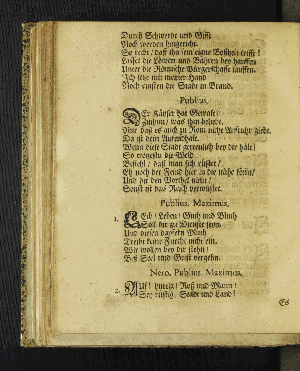 Durch Schwerdt und Gifft
Noch werden hingericht.
So recht / daß ihn sein eigne Boßheit trifft!
Lasset die Löwen und Bähren bey hauffen
Unter die Römische Bürgerschafft lauffen.
Ich setze mit meiner Hand
Noch einsten die Stadt in Brand.
Publius.
DEr Käyser hat Gewalt /
Zuthun / was ihm beliebt.
Nur daß es auch zu Rom nicht Auffruhr giebt.
Da ist dein Auffenthalt.
Wenn diese Stadt getreulich bey dir hält /
So
Befiehl / daß man sich rüstet /
Eh noch der Feind hier in die nähe
Und dir den Vortheil
Sonst ist das Reich verwüstet.
Publius. Maximus.
1. LEib / Leben / Guth und Bluth
Soll dir zu Dienste seyn.
Und diesen dapffern Muth
Treibt keine Furcht nicht ein.
Wir wollen bey dir stehn /
Biß Seel und Geist vergehn.
Nero. Publius. Maximus.
2. AUf! hurtig / Roß und Mann!
Sey rüstig, Stadt und Land!
Es